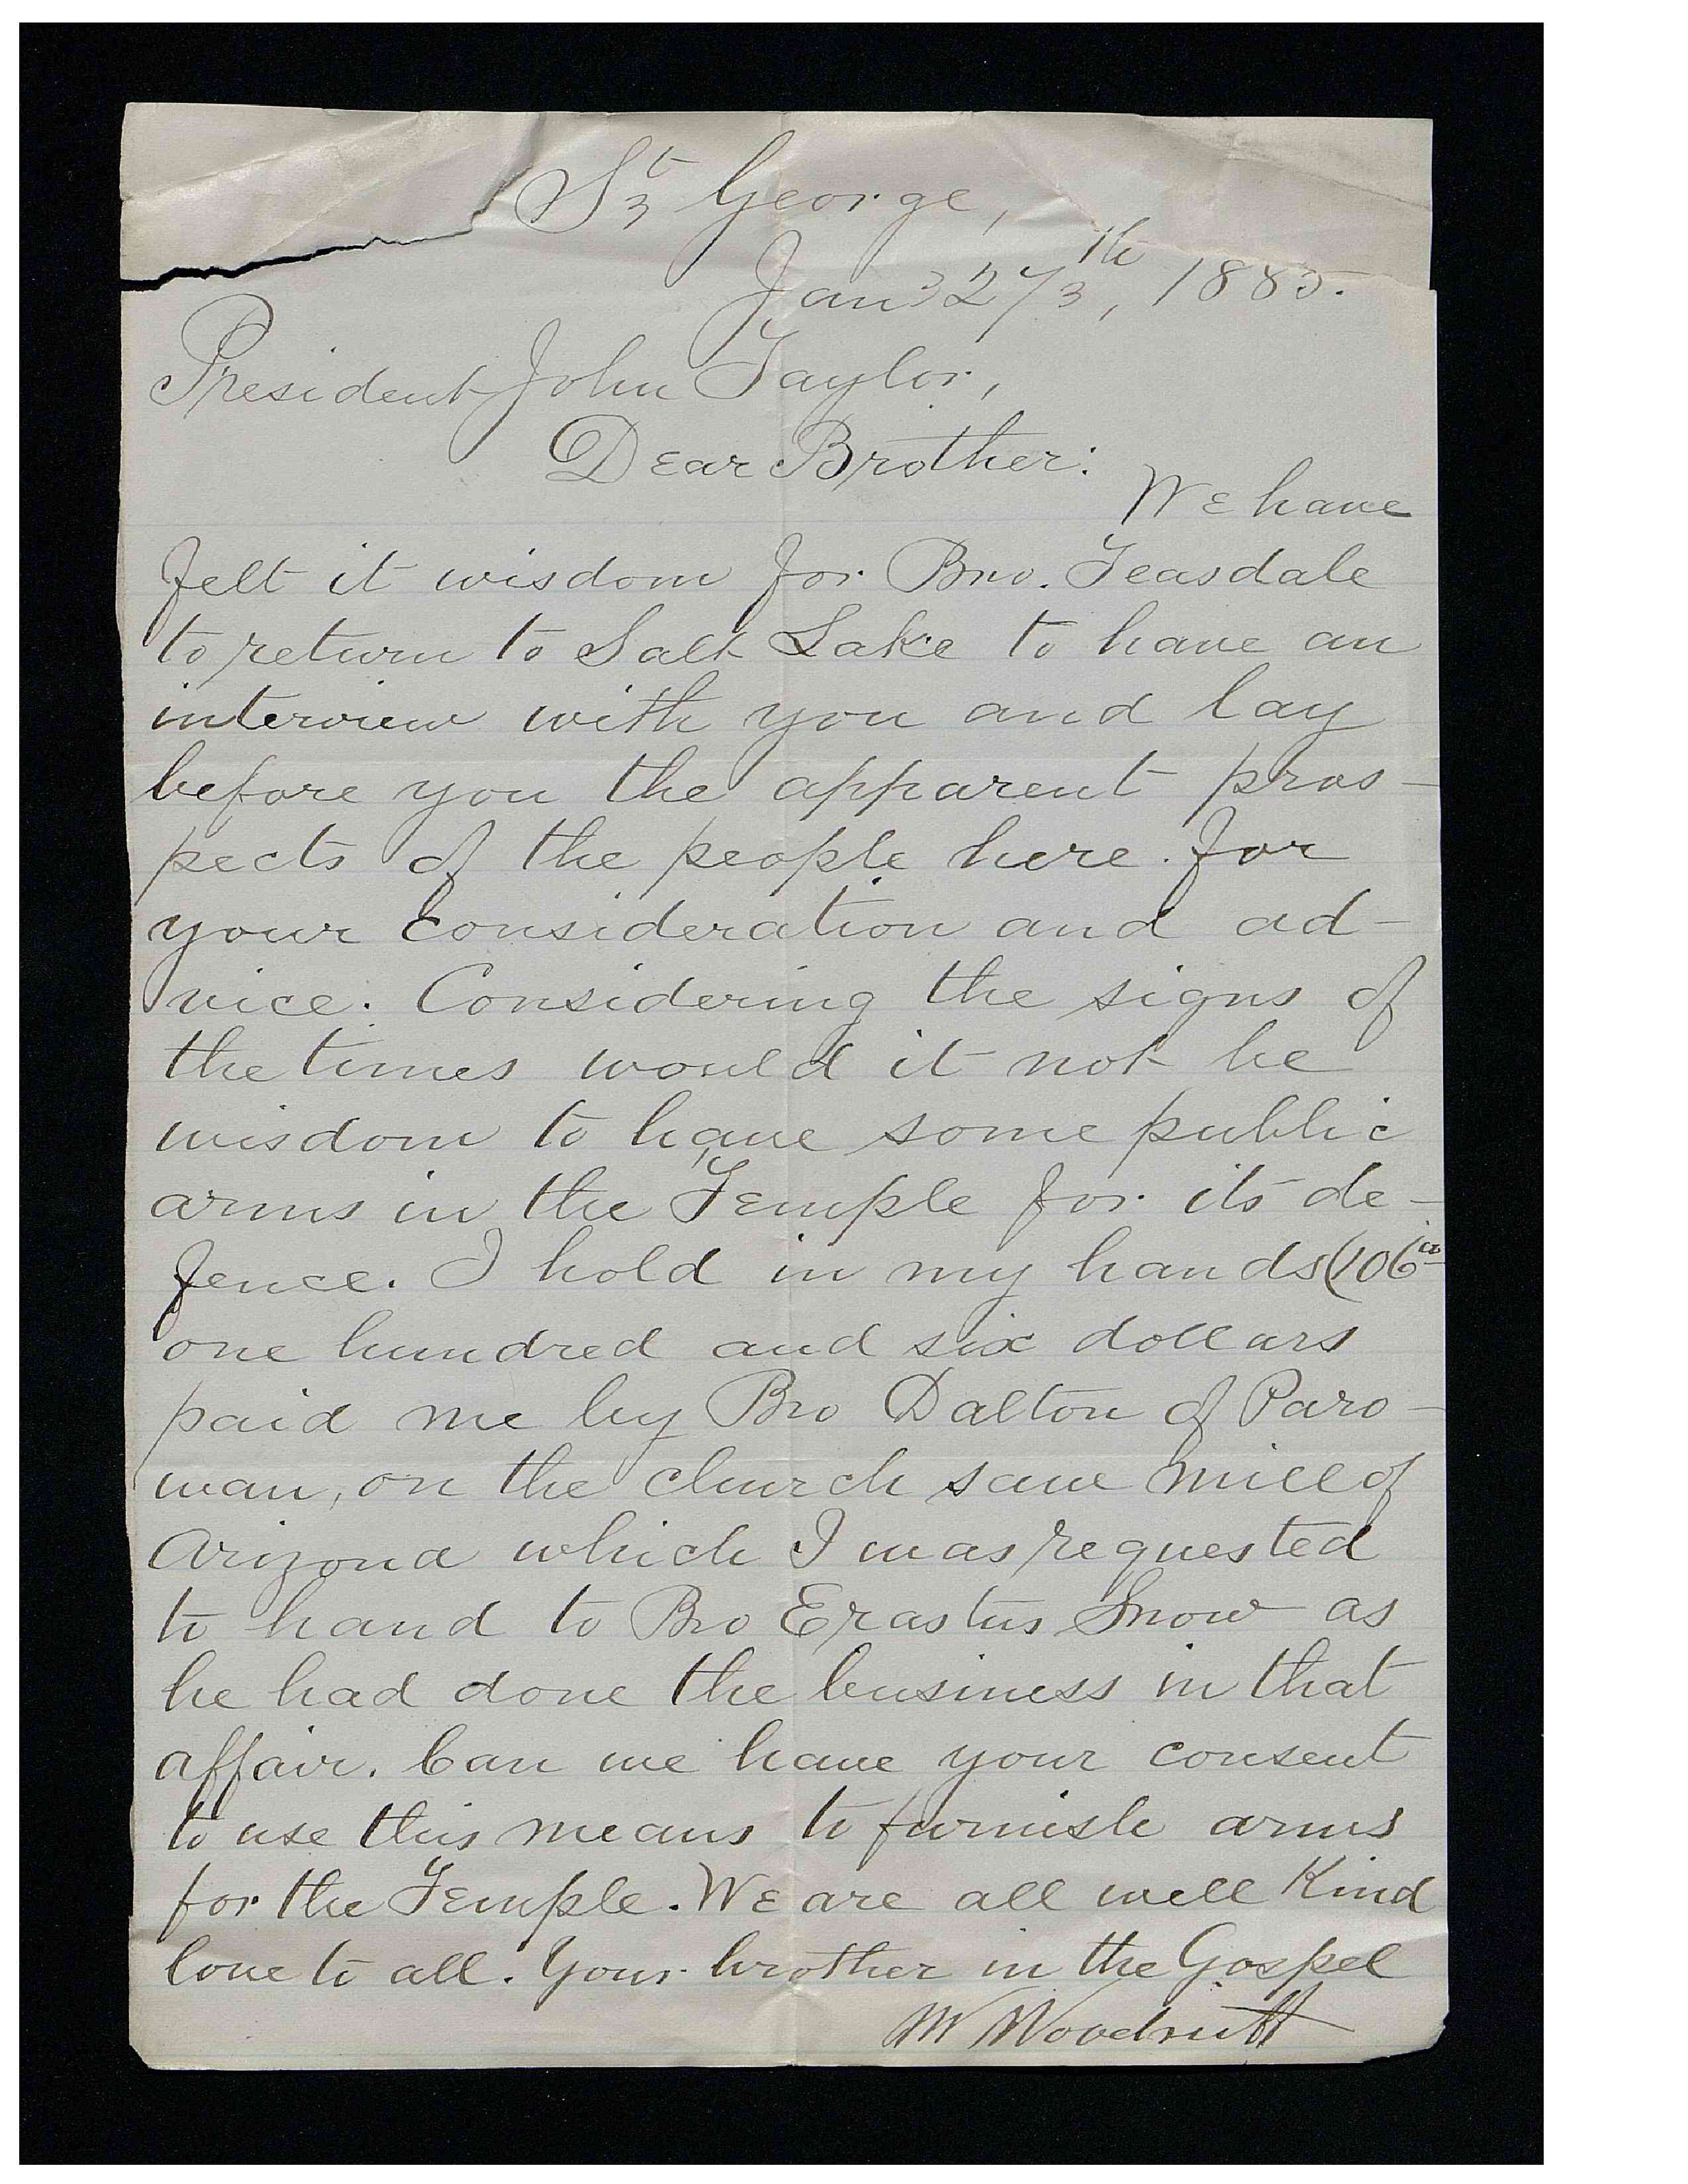 St George,
Jan 27th, 1885.
President John Taylor,
Dear Brother:
We have
felt it wisdom for Bro. Teasdale
to return to Salt Lake to have an
interview with you and lay
before you the apparent pros-
pects of the people here. for
your consideration and ad-
vice. Considering the signs of
the times would it not be
wisdom to have some public
arms in the Temple for its de-
fence. I hold in my hands (106
one hundred and six dollars
paid me by Bro Dalton of Paro-
wan, on the church saw mill of
Arizona which I was requested
to hand to Bro Erastus Snow as
he had done the business in that
affair. Can we have your consent
to use this means to furnish arms
for the Temple. We are all well Kind
love to all. Your brother in the Gospel
W Woodruff